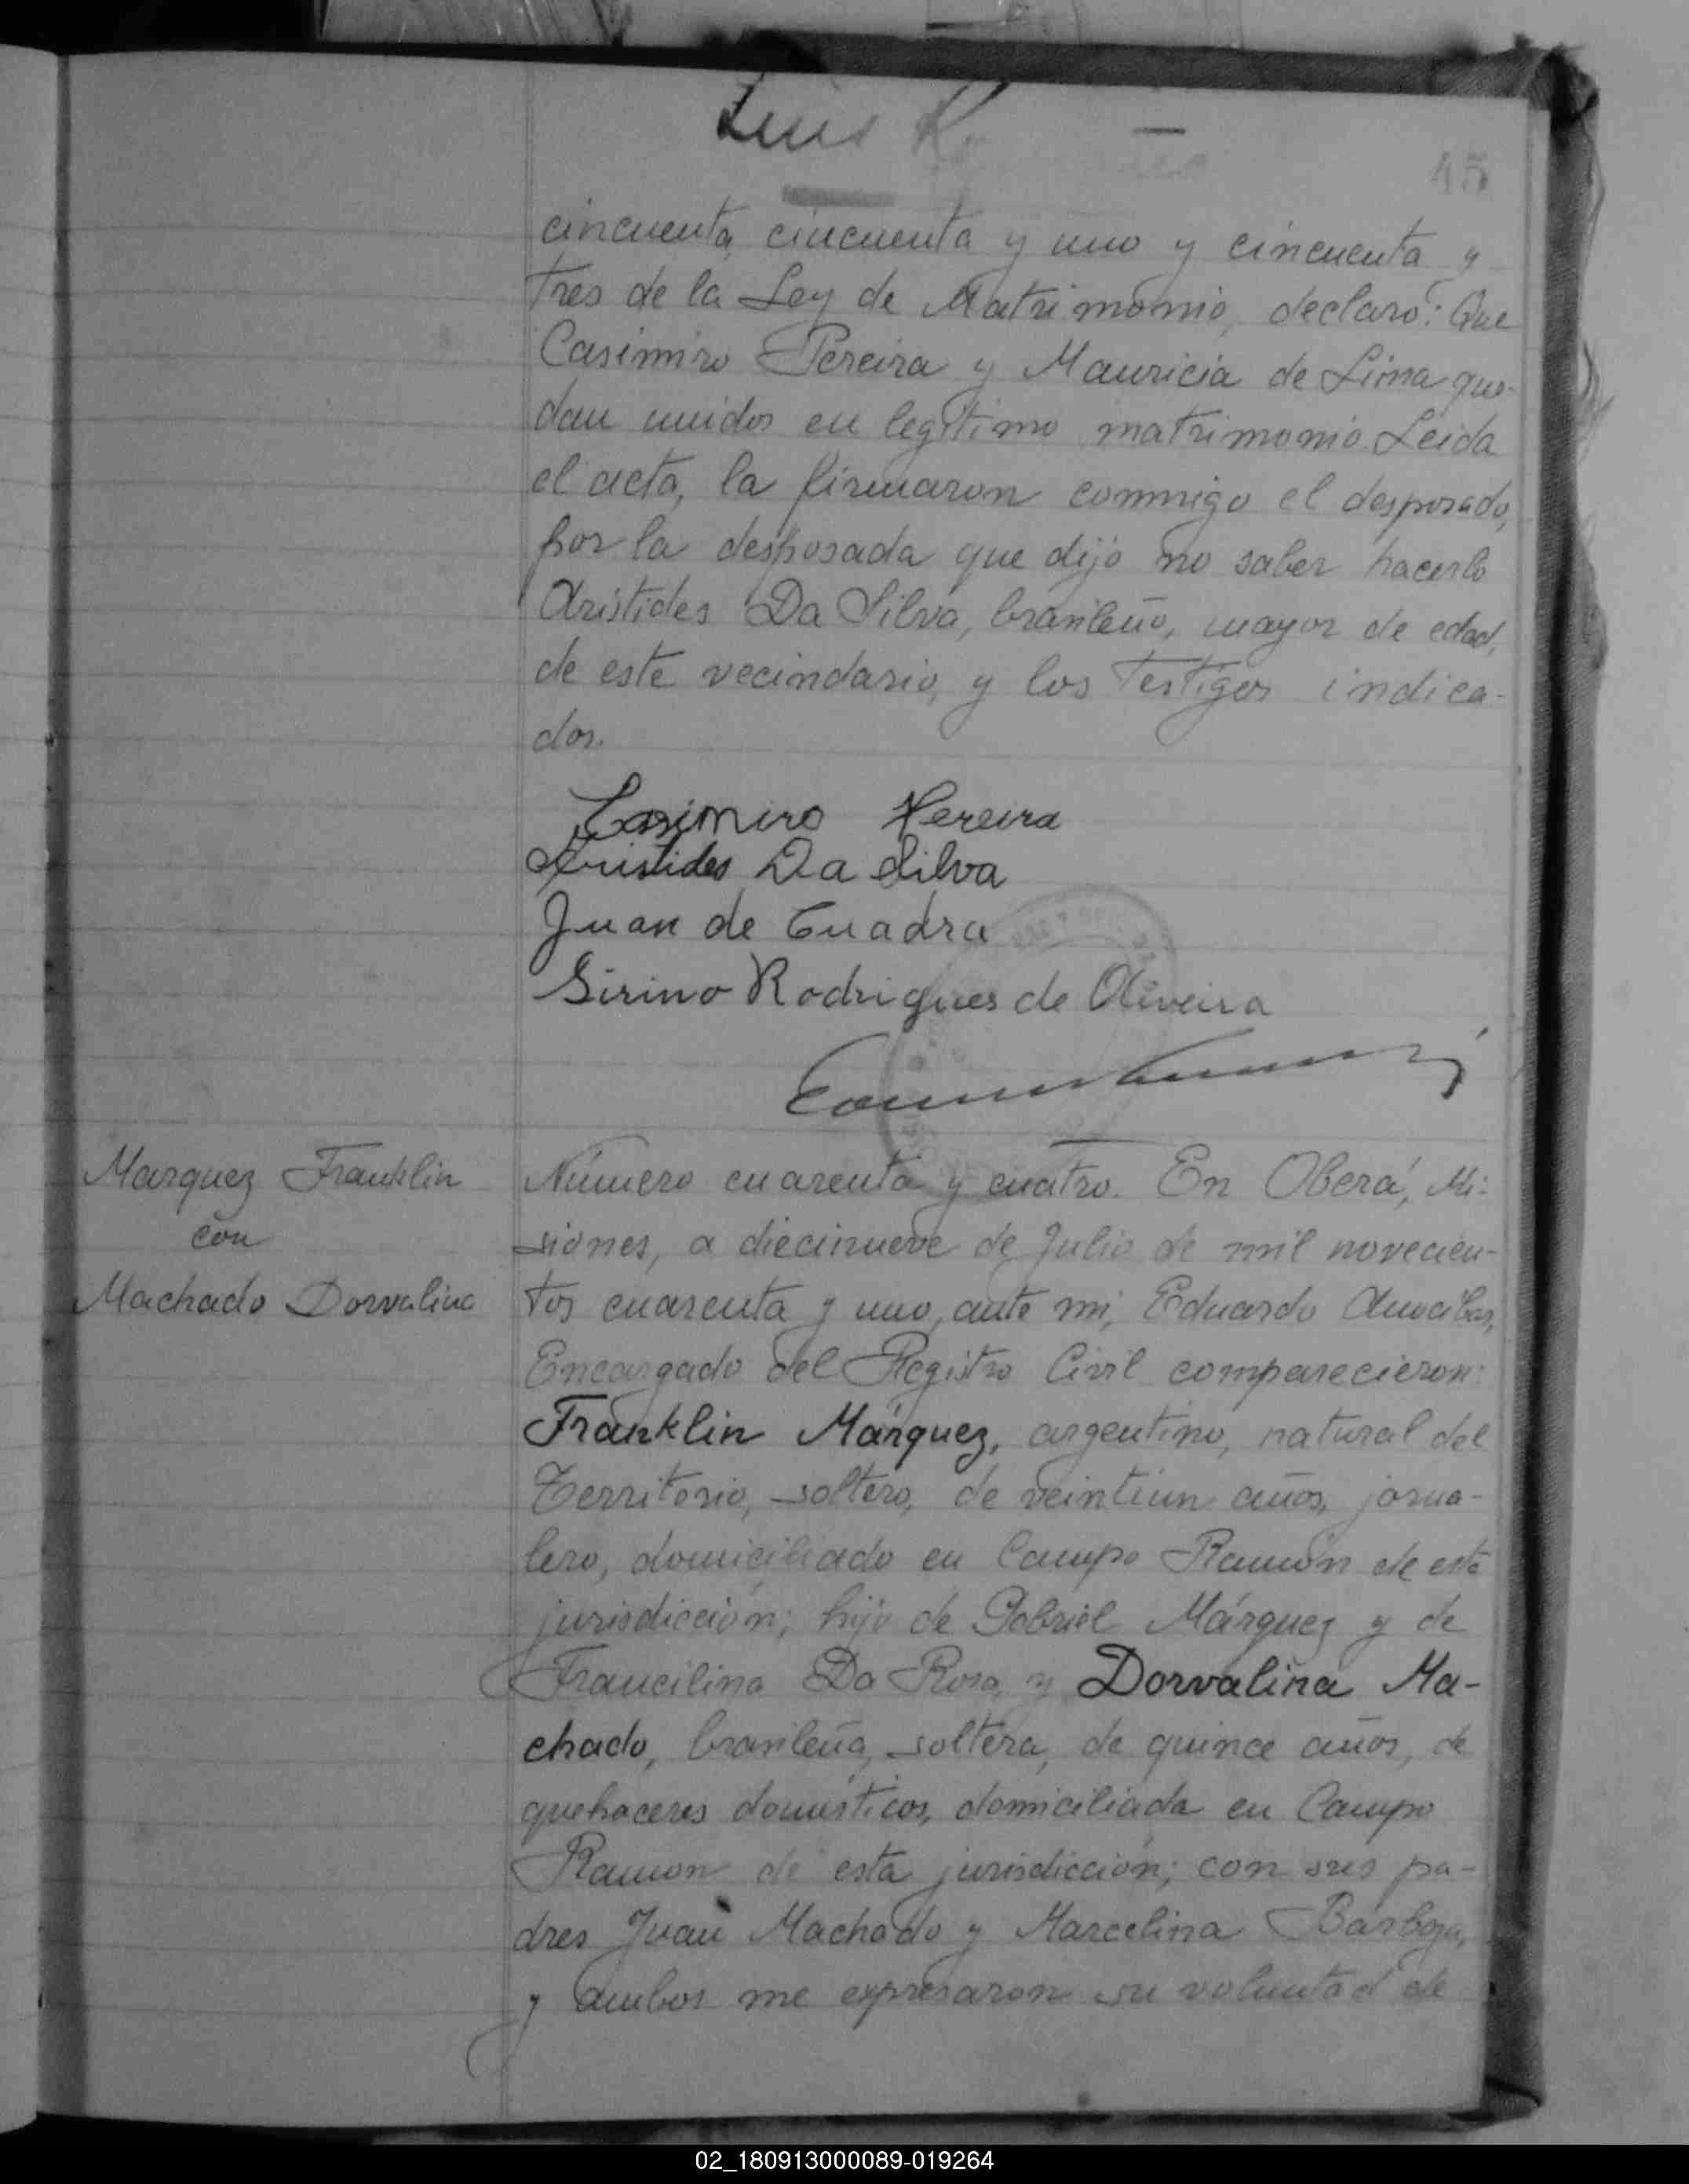 Luis
45
cincuenta, cincuenta y uno y cincuenta y
tres de la Ley de Matrimonio, declaro: Que
Casimiro Pereira y Mauricia de Lima que-
dan unidos en legítimo matrimonio. Leida
el acta, la firmaron conmigo el desposado,
por la desposada que dijo no saber hacerlo
Aristides Da Silva, brasileño, mayor de edad,
de este vecindario, y los testigos indica-
dos.
Casimiro Pereira
Aristides Da Silva
Juan de Cuadra
Sirino Rodrigues de Oliveira
Marquez Franklin
con
Machado Dorvalina
Número cuarenta y cuatro. En Oberá, Mi-
siones, a diecinueve de Julio de mil novecien-
tos cuarenta y uno, ante mi, Eduardo
Encargado del Registro Civil comparecieron:
Franklin Márquez, argentino, natural del
Territorio, soltero, de veintiun años, jorna-
lero, domiciliado en Campo Ramón de esta
jurisdicción; hijo de Gabriel Márquez y de
Francilina Da Rosa, y Dorvalina Ma-
chado, brasileña, soltera, de quince años, de
quehaceres domésticos, domiciliada en Campo
Ramon de esta jurisdicción; con sus pa-
dres Juan Machado y Marcelina Barboza,
y ambos me expresaron su voluntad de
02_180913000089-019264